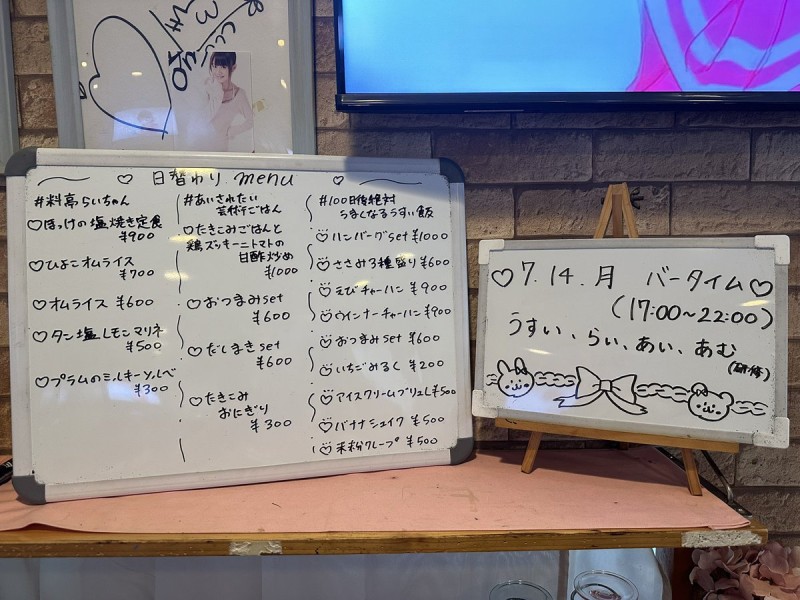 日替わり menu
#料亭らいちゃん
ほっけの塩焼き定食
¥900
ひよこオムライス
¥700
オムライス ¥600
タン塩レモンマリネ
¥500
プラムのミルキーソルベ
¥300
#あいされたい
ごはん
たきこみごはんと
鶏ズッキーニトマトの
甘酢炒め
¥1000
おつまみset
¥600
だしまきset
¥600
たきこみ
おにぎり
¥300
#100日後絶対
うまくなるうすい飯
ハンバーグset ¥1000
ささみ3種盛り ¥600
えびチャーハン ¥900
ウインナーチャーハン ¥900
おつまみset ¥600
いちごみるく ¥200
アイスクリームブリュレ ¥500
バナナシェイク ¥500
米粉クレープ ¥500
7.14.月 バータイム
(17:00~22:00)
うすい、らい、あい、あむ
(研修)